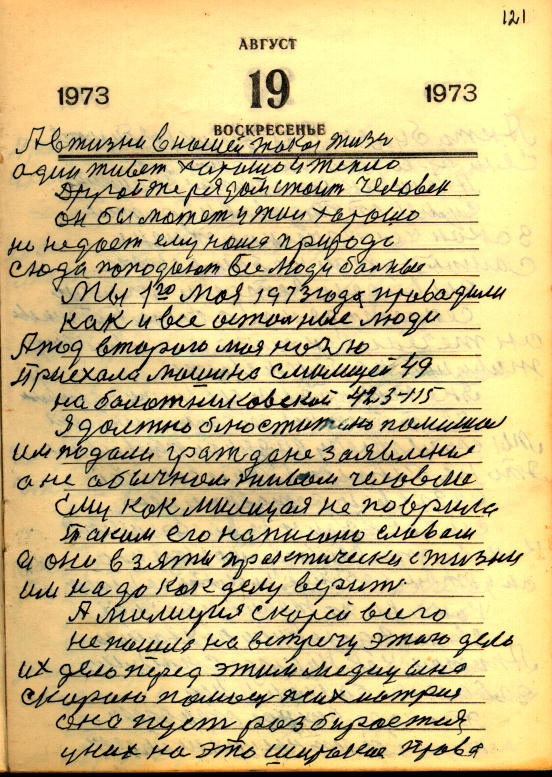 121
АВГУСТ
1973 19 1973
ВОСКРЕСЕНЬЕ
А в жизни в нашей такая жизь
один живет хорошо и тепло
рядом стоит человек
он бы может и жил хорошо
но не дает ему наша природа
сюда попадают все люди больные
Мы 1го мая 1973 года провадили
как и все остальные люди
А под второго мая ночью
приехала машина с милицей 49
на балотниковской 423-115
Я должно блюститель
им подали граждане заявления
а не обычном живом человеке
Ему как милицая не поврила
таким его написано словам
а они взяты практически с жизни
им надо как делу верить
А милиция скорей всего
не пошла на встречу этого дела
их дело перед этим медецына
скораю помощ псих
она пуст разбирается
у них на это широкие права